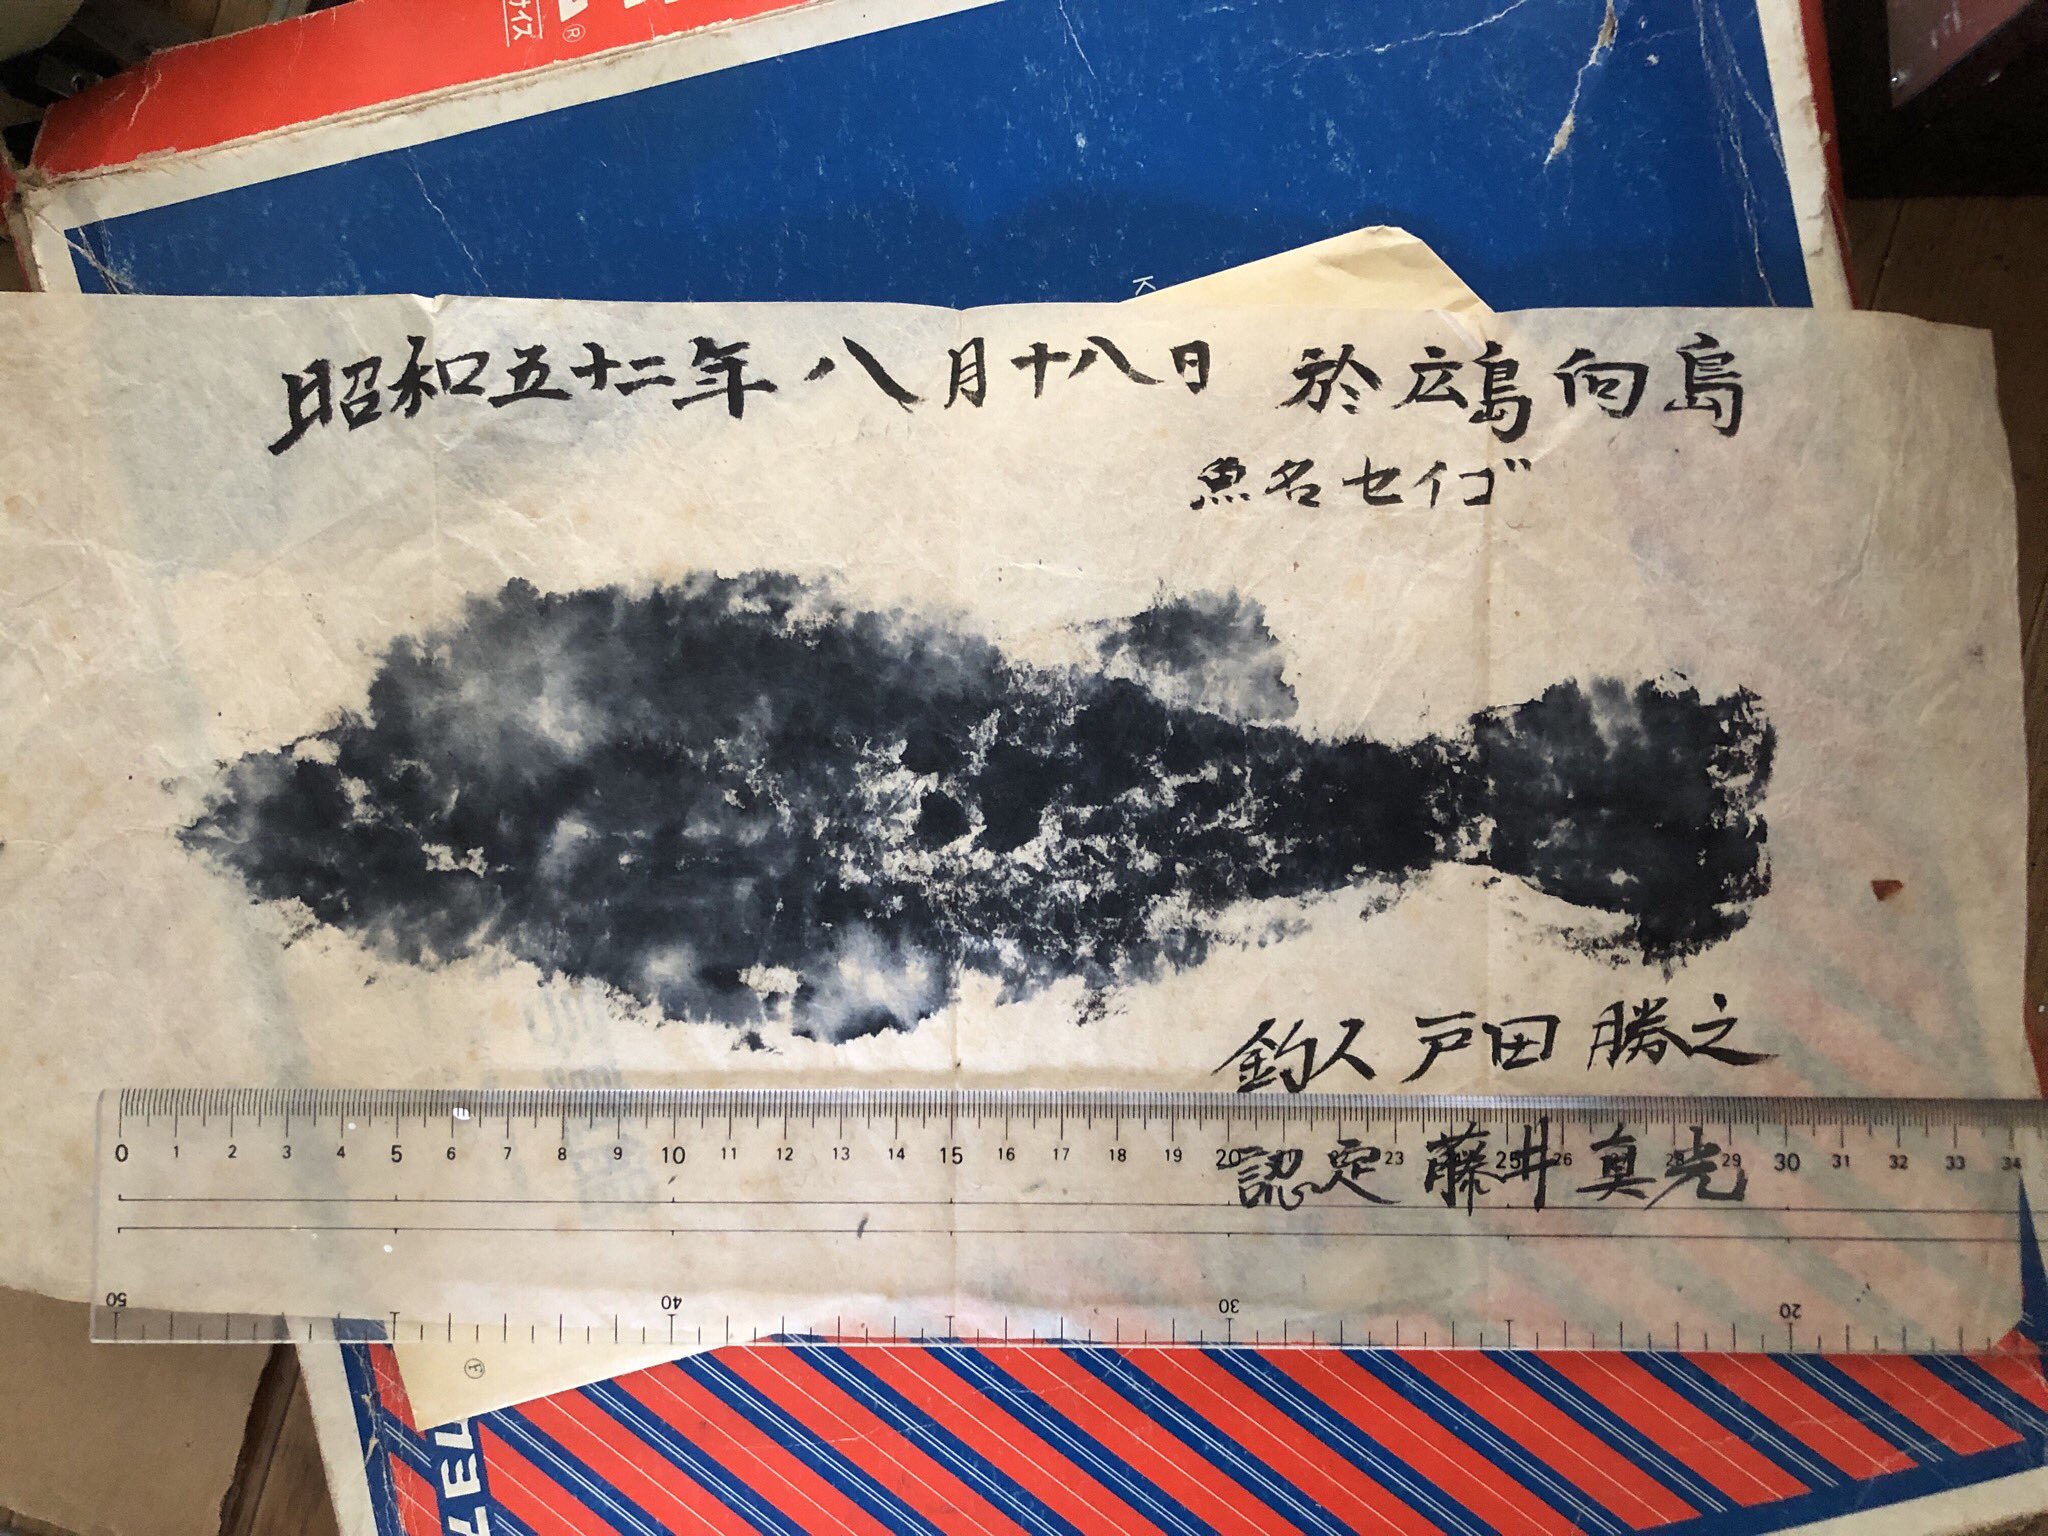 サイズ
®
K
昭和五十二年 八月十八日 於広島向島
魚名セイゴ
釣人 戸田 勝之
認定 藤井 真光
0 1 2 3 4 5 6 7 8 9 10 11 12 13 14 15 16 17 18 19 20 23 25 26 28 29 30 31 32 33 34
50 40 30 20